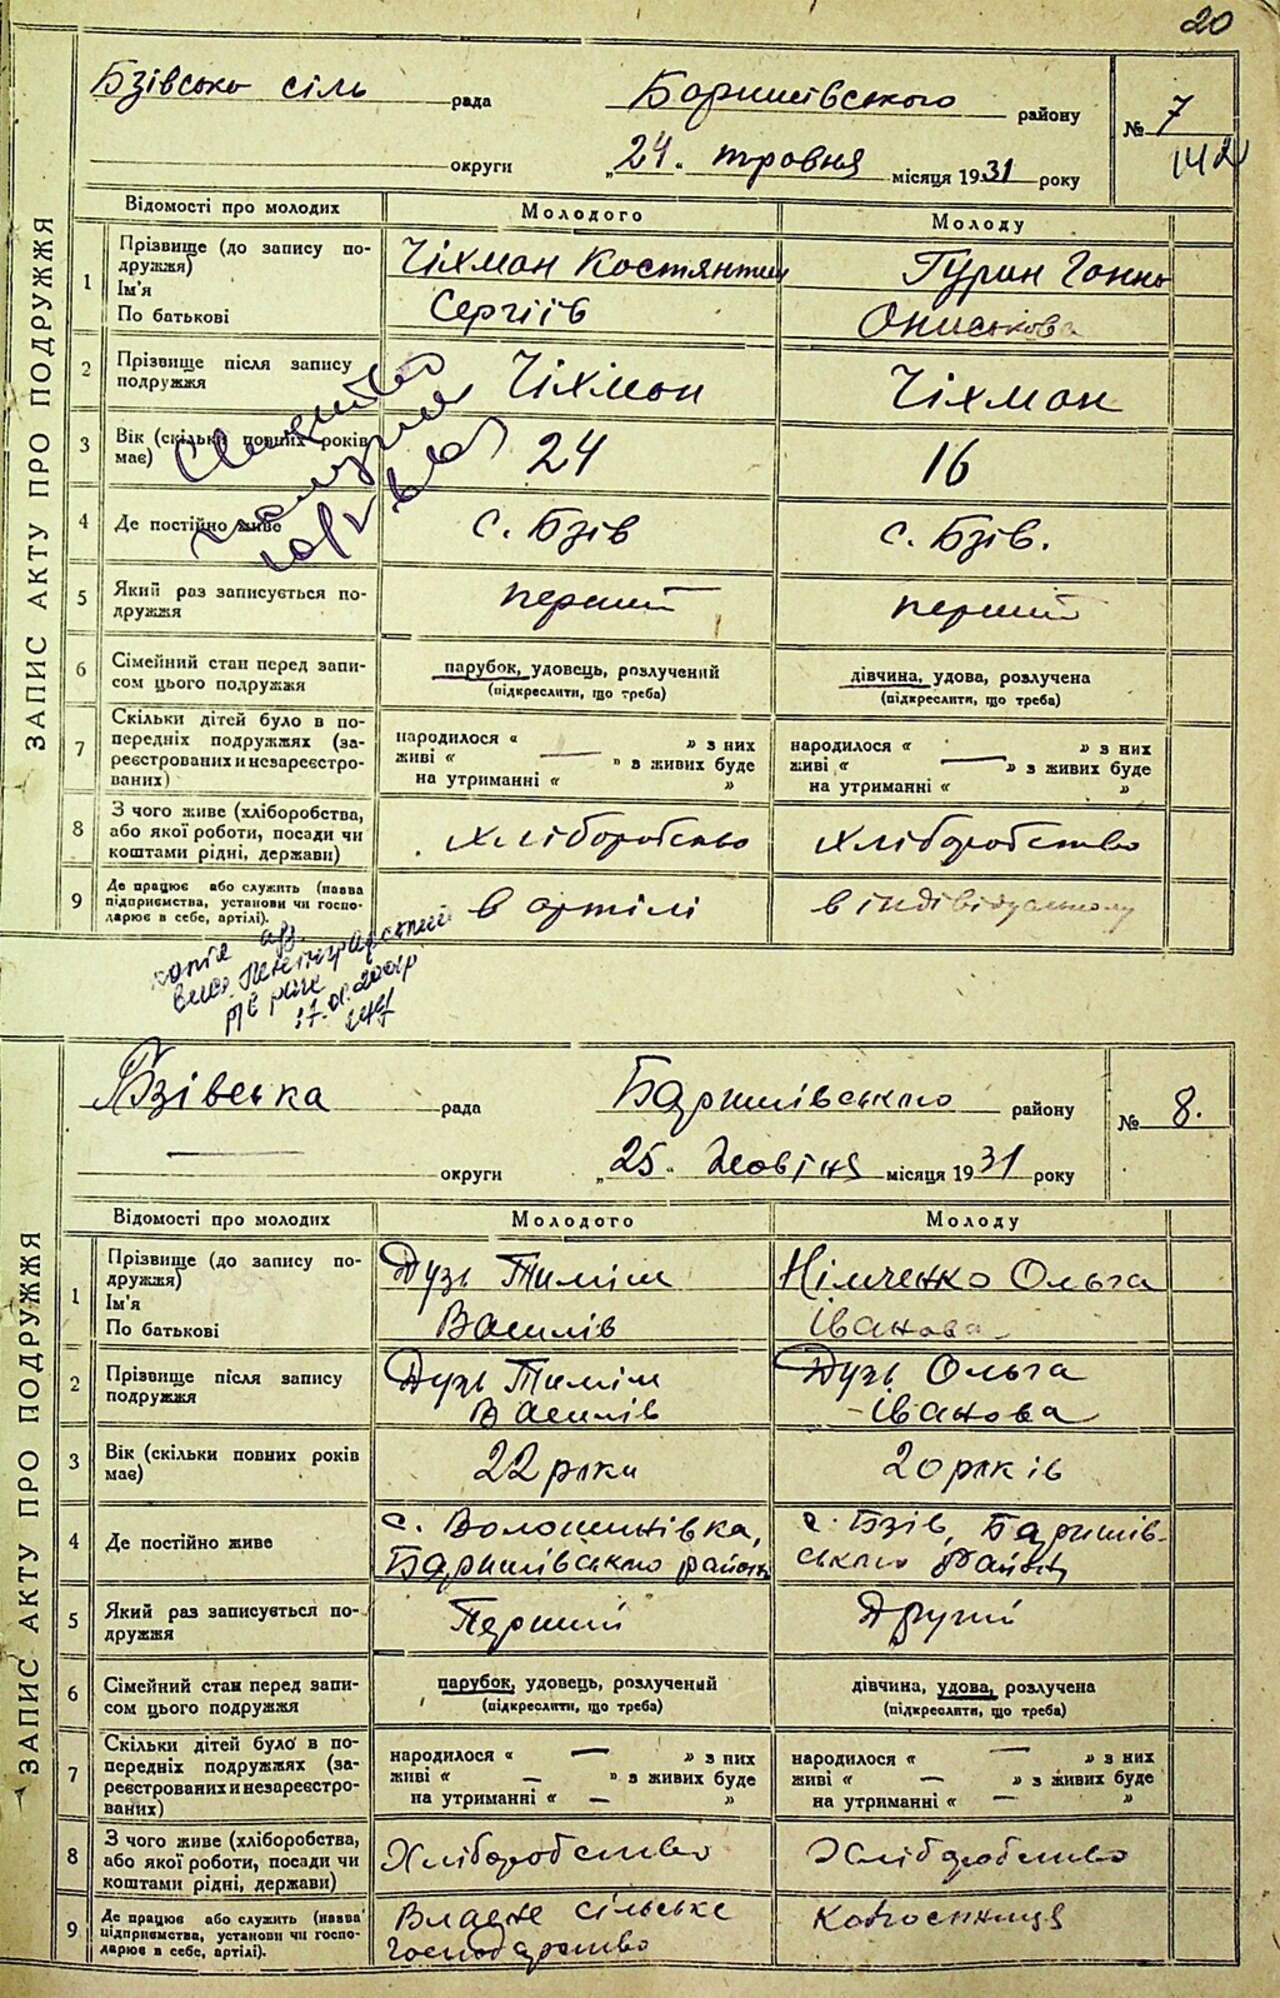 20
Бзівська сіль рада Баришівського району № 7
142
округи „24“ травня місяця 1931 року
ЗАПИС АКТУ ПРО ПОДРУЖЖЯ
Відомості про молодих Молодого Молоду
1 Прізвище (до запису по-
дружжя)
Ім'я
По батькові
Чіхман Костянтин
Сергіїв
Гурин Ганна
Ониськова
2 Прізвище після запису
подружжя
Чіхман Чіхман
3 Вік (скільки повних років
має)
24 16
4 Де постійно живе с. Бзів с. Бзів.
5 Який раз записується по-
дружжя
перший перший
6 Сімейний стан перед запи-
сом цього подружжя
парубок, удовець, розлучений
(підкреслити, що треба)
дівчина, удова, розлучена
(підкреслити, що треба)
7 Скільки дітей було в по-
передніх подружжях (за-
реєстрованих и незареєстро-
ваних)
народилося « — » з них
живі « » з живих буде
на утриманні « »
народилося « — » з них
живі « » з живих буде
на утриманні « »
8 З чого живе (хліборобства,
або якої роботи, посади чи
коштами рідні, держави)
хліборобство хліборобство
9 Де працює або служить (назва
підприємства, установи чи госпо-
дарює в себе, артілі).
в артілі в індівідуальному
копія
17.01.2001р
Бзівська рада Баришівського району № 8.
— округи „25“ жовтня місяця 1931 року
ЗАПИС АКТУ ПРО ПОДРУЖЖЯ
Відомості про молодих Молодого Молоду
1 Прізвище (до запису по-
дружжя)
Ім'я
По батькові
Дузь Тиміш
Василів
Німченко Ольга
Іванова
2 Прізвище після запису
подружжя
Дузь Тиміш
Василів
Дузь Ольга
Іванова
3 Вік (скільки повних років
має)
22 роки 20 років
4 Де постійно живе
с. Волошинівка,
Баришівського району
с. Бзів, Баришів-
ського району
5 Який раз записується по-
дружжя
Перший Другий
6 Сімейний стан перед запи-
сом цього подружжя
парубок, удовець, розлучений
(підкреслити, що треба)
дівчина, удова, розлучена
(підкреслити, що треба)
7 Скільки дітей було в по-
передніх подружжях (за-
реєстрованих и незареєстро-
ваних)
народилося « — » з них
живі « — » з живих буде
на утриманні « — »
народилося « — » з них
живі « — » з живих буде
на утриманні « — »
8 З чого живе (хліборобства,
або якої роботи, посади чи
коштами рідні, держави)
Хліборобство Хліборобство
9 Де працює або служить (назва
підприємства, установи чи госпо-
дарює в себе, артілі).
Власне сільське
господарство